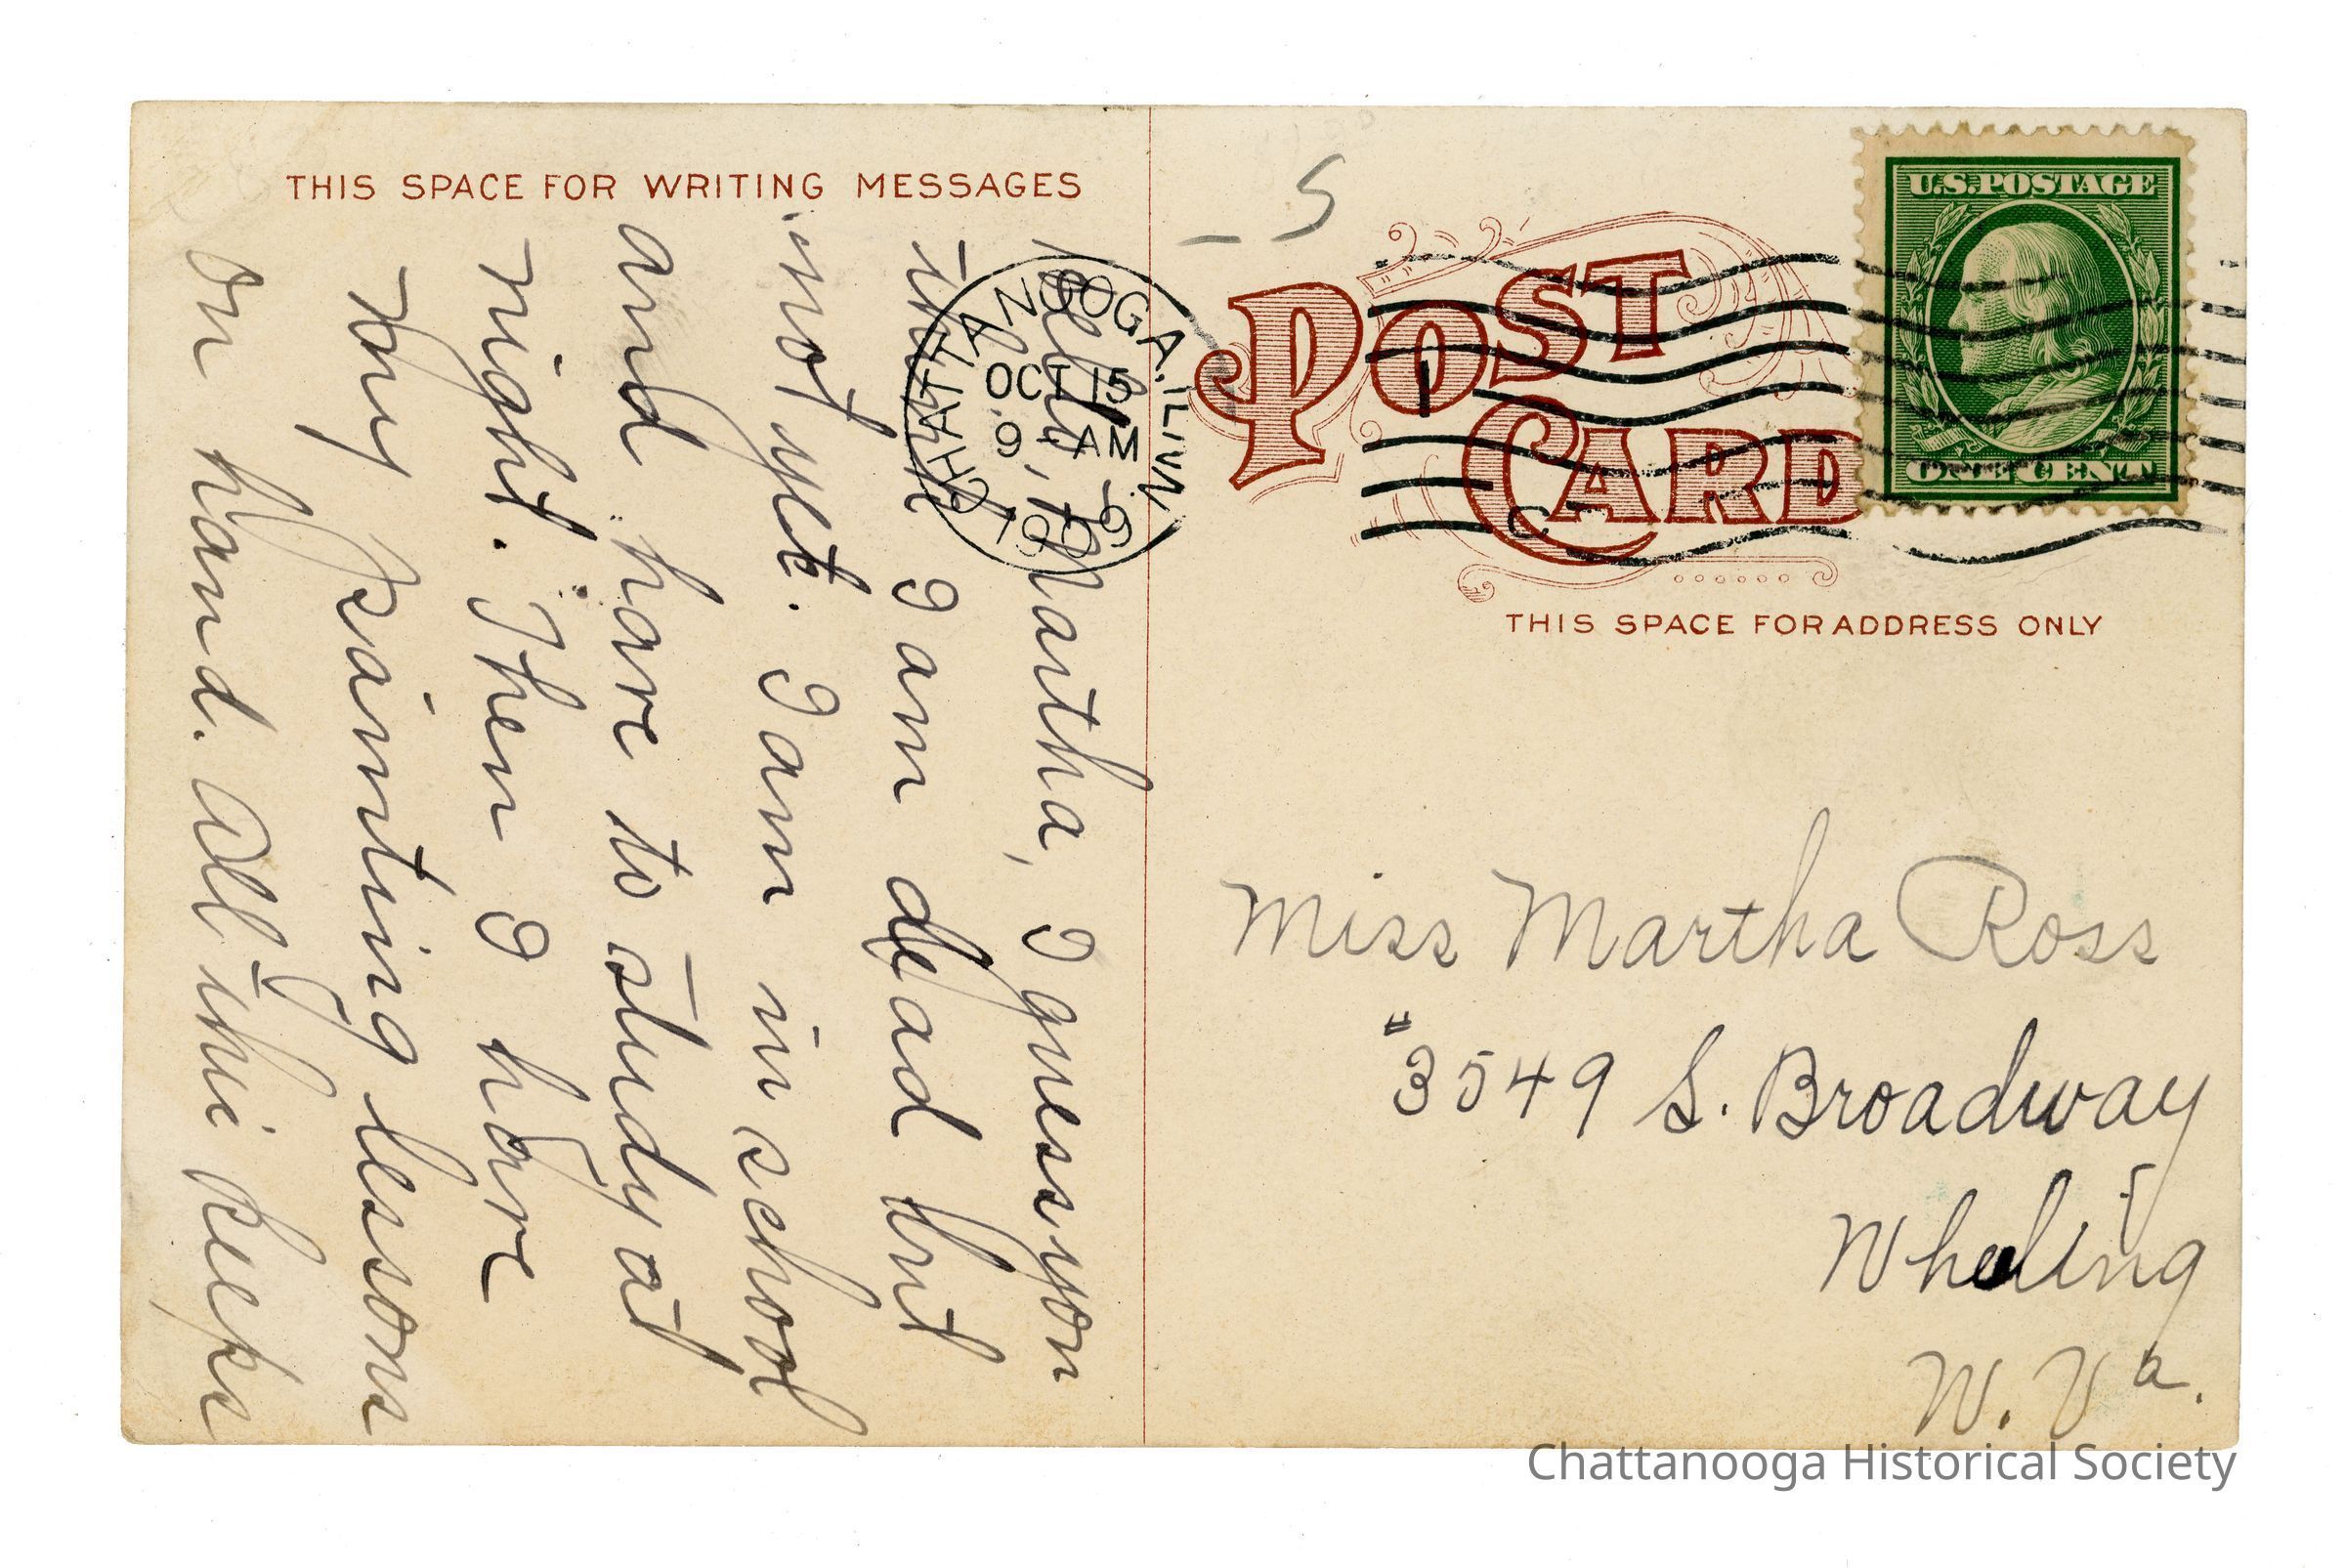 THIS SPACE FOR WRITING MESSAGES
Hello Martha, I guess you
think I am dead but
not yet. I am in school
and have to study at
night. Then I have
my painting lessons
on hand. All this keeps
CHATTANOOGA, TENN.
OCT 15
9 - AM
1909
5
POST CARD
U.S. POSTAGE
ONE CENT
1
C
THIS SPACE FOR ADDRESS ONLY
Miss Martha Ross
#3549 S. Broadway
Wheeling
W. Va.
Chattanooga Historical Society